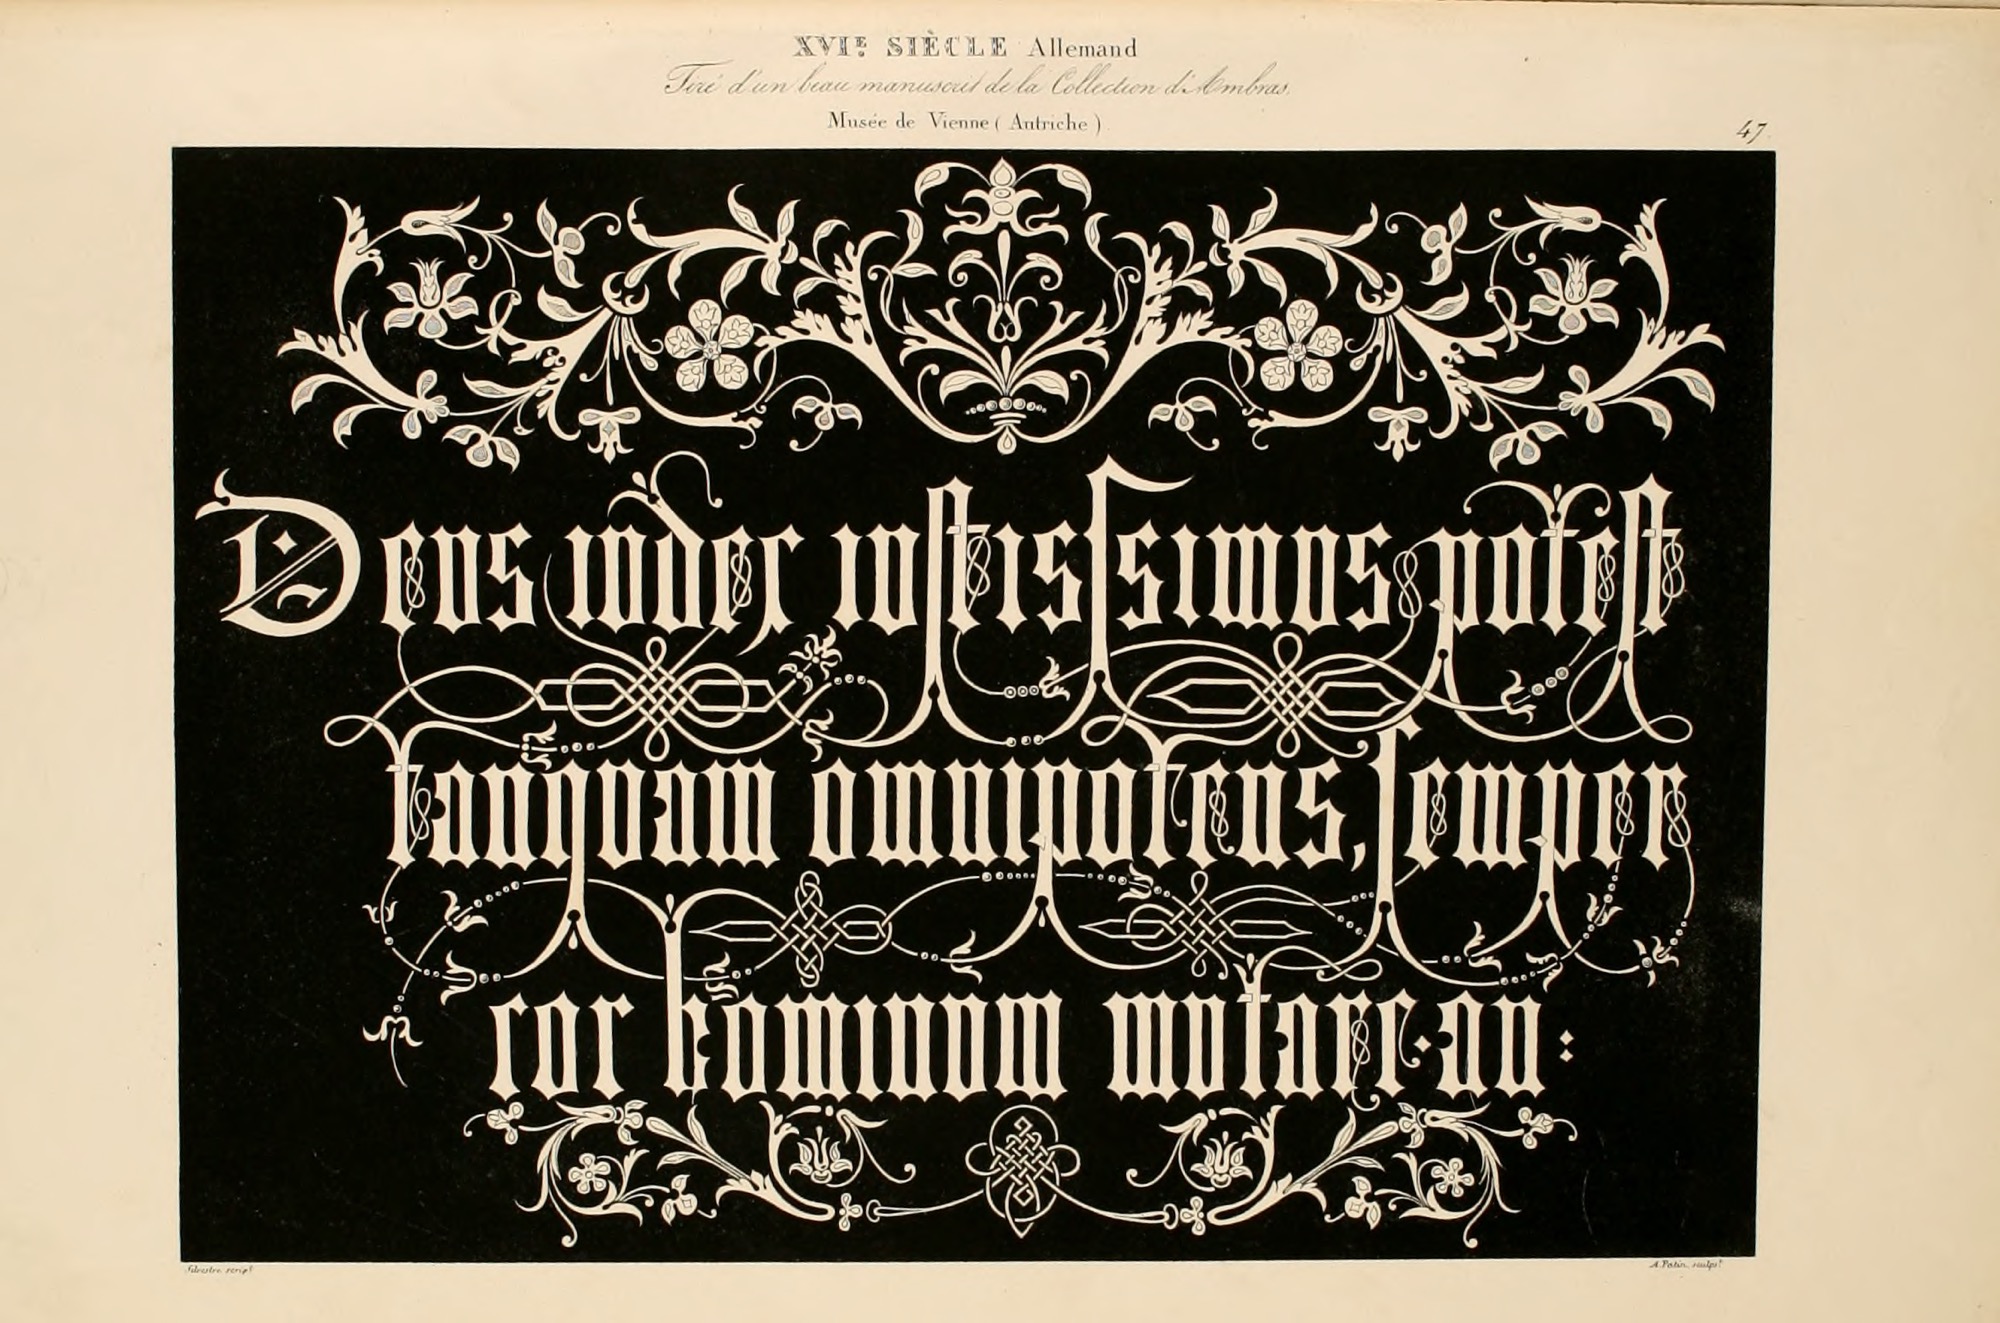 XVIE. SIÈCLE Allemand
Tiré d'un beau manuscrit de la Collection d'Ambras.
Musée de Vienne (Autriche)
47.
Deus iudex iustissimus potest
tanquam omnipotens, semper
cor hominum mutare. au:
Silvestre. script.
A. Patin. sculpst.